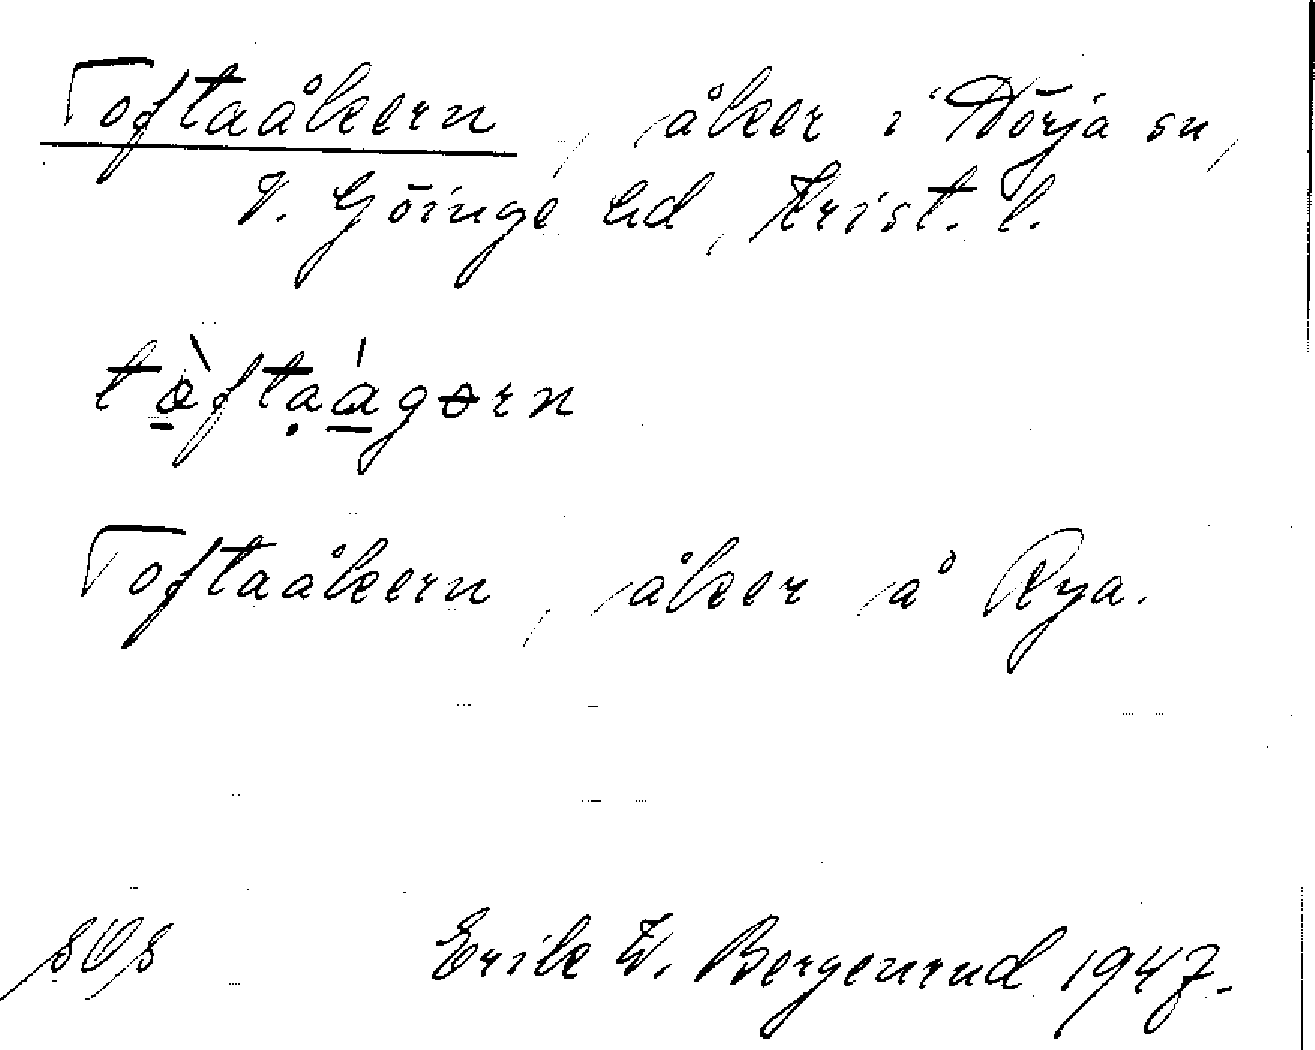 Toftaåkern, åker i Nörja sn,
V. Göinge hd, Krist. l.
tòftaágərn
Toftaåkern, åker å Rya.
Erik W. Bergenrud 1947.